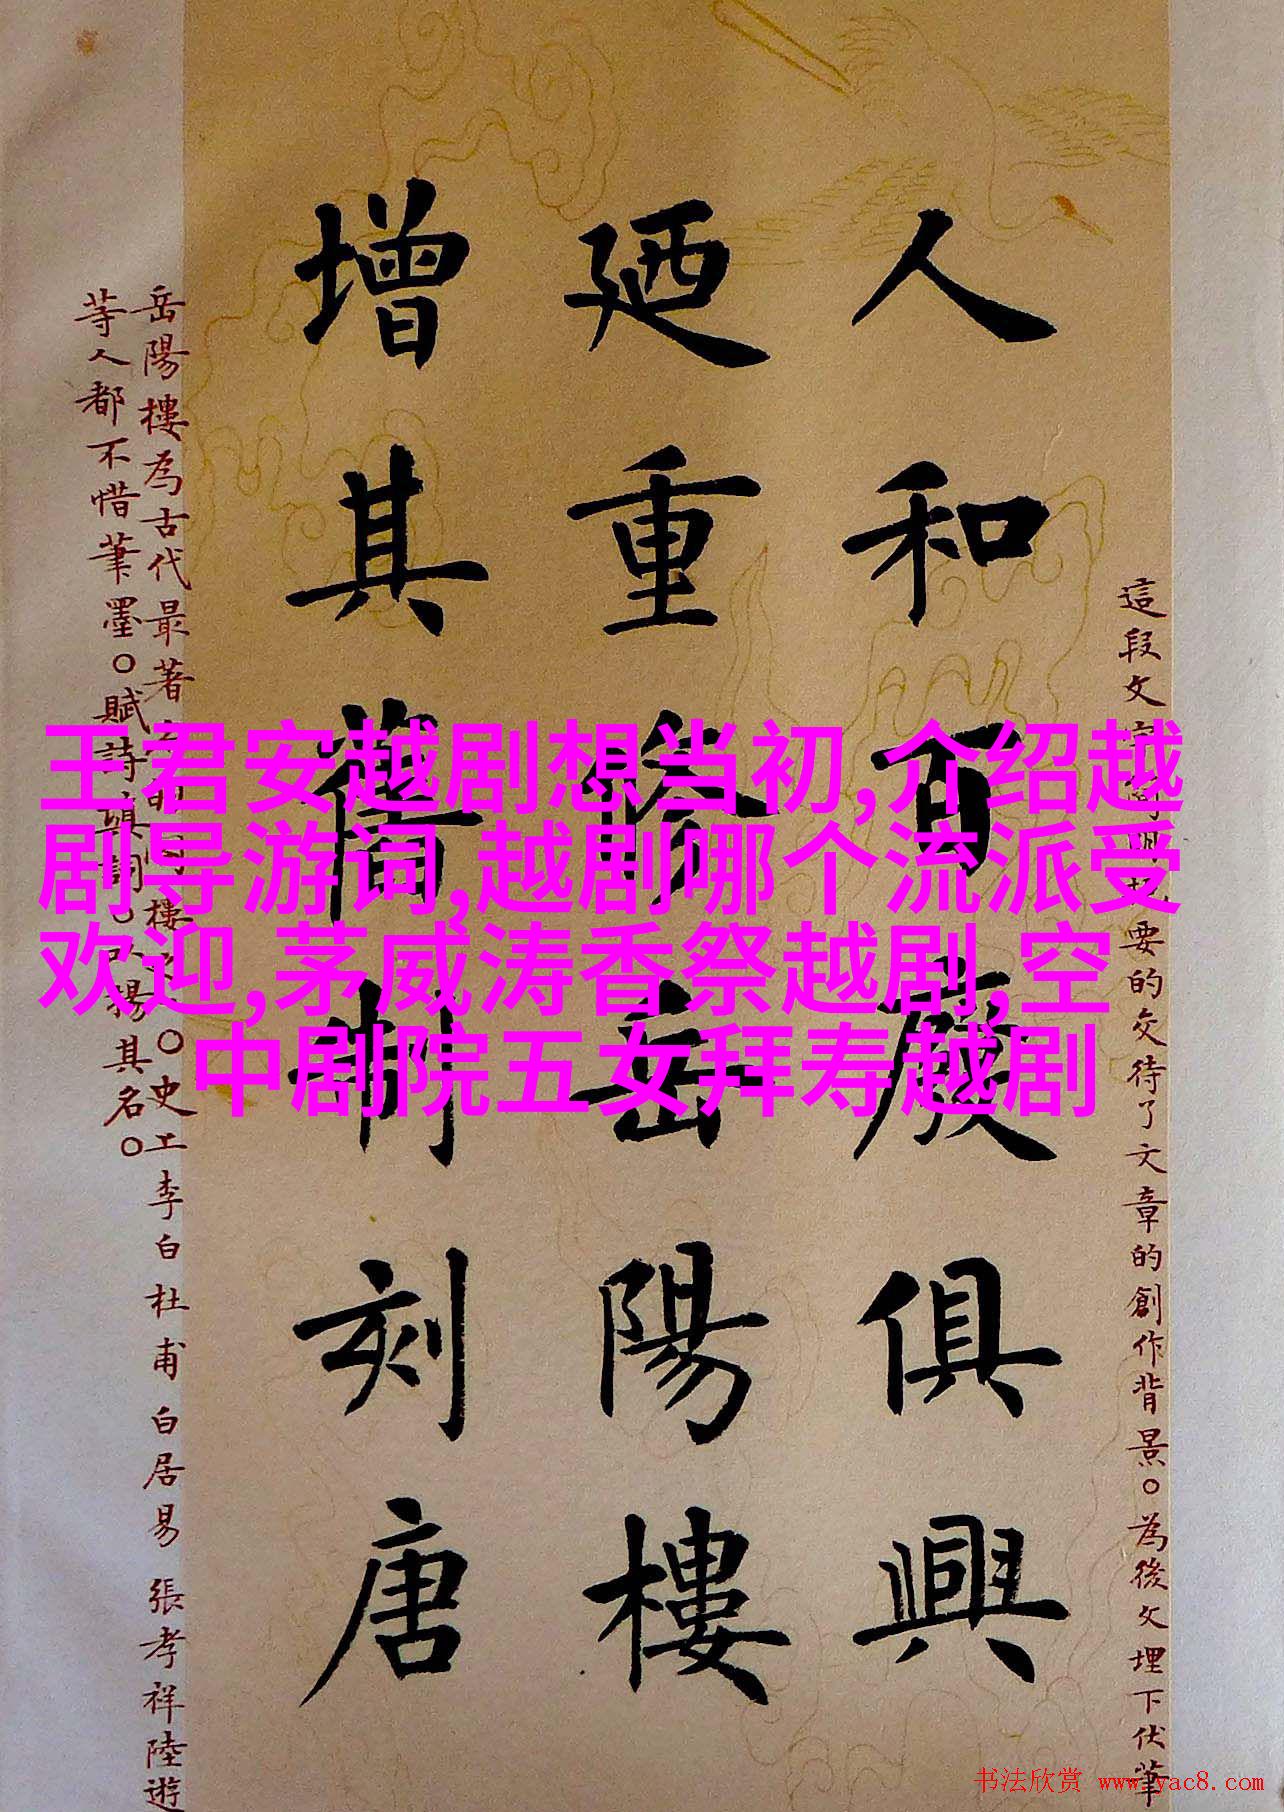 這段文明要的交待了文章的創作背景。為後文埋下伏筆
人和百廢俱興
廼重修岳陽樓
增其舊制刻唐
岳陽樓為古代最著樓。史李白杜甫白居易張孝祥陸遊
等人都不惜筆墨。賦詩填詞。以揚其名。
王君安越剧想当初,介绍越
剧导游词,越剧哪个流派受
欢迎,茅威涛香祭越剧,空
中剧院五女拜寿越剧
书法欣赏 www.yac8.com